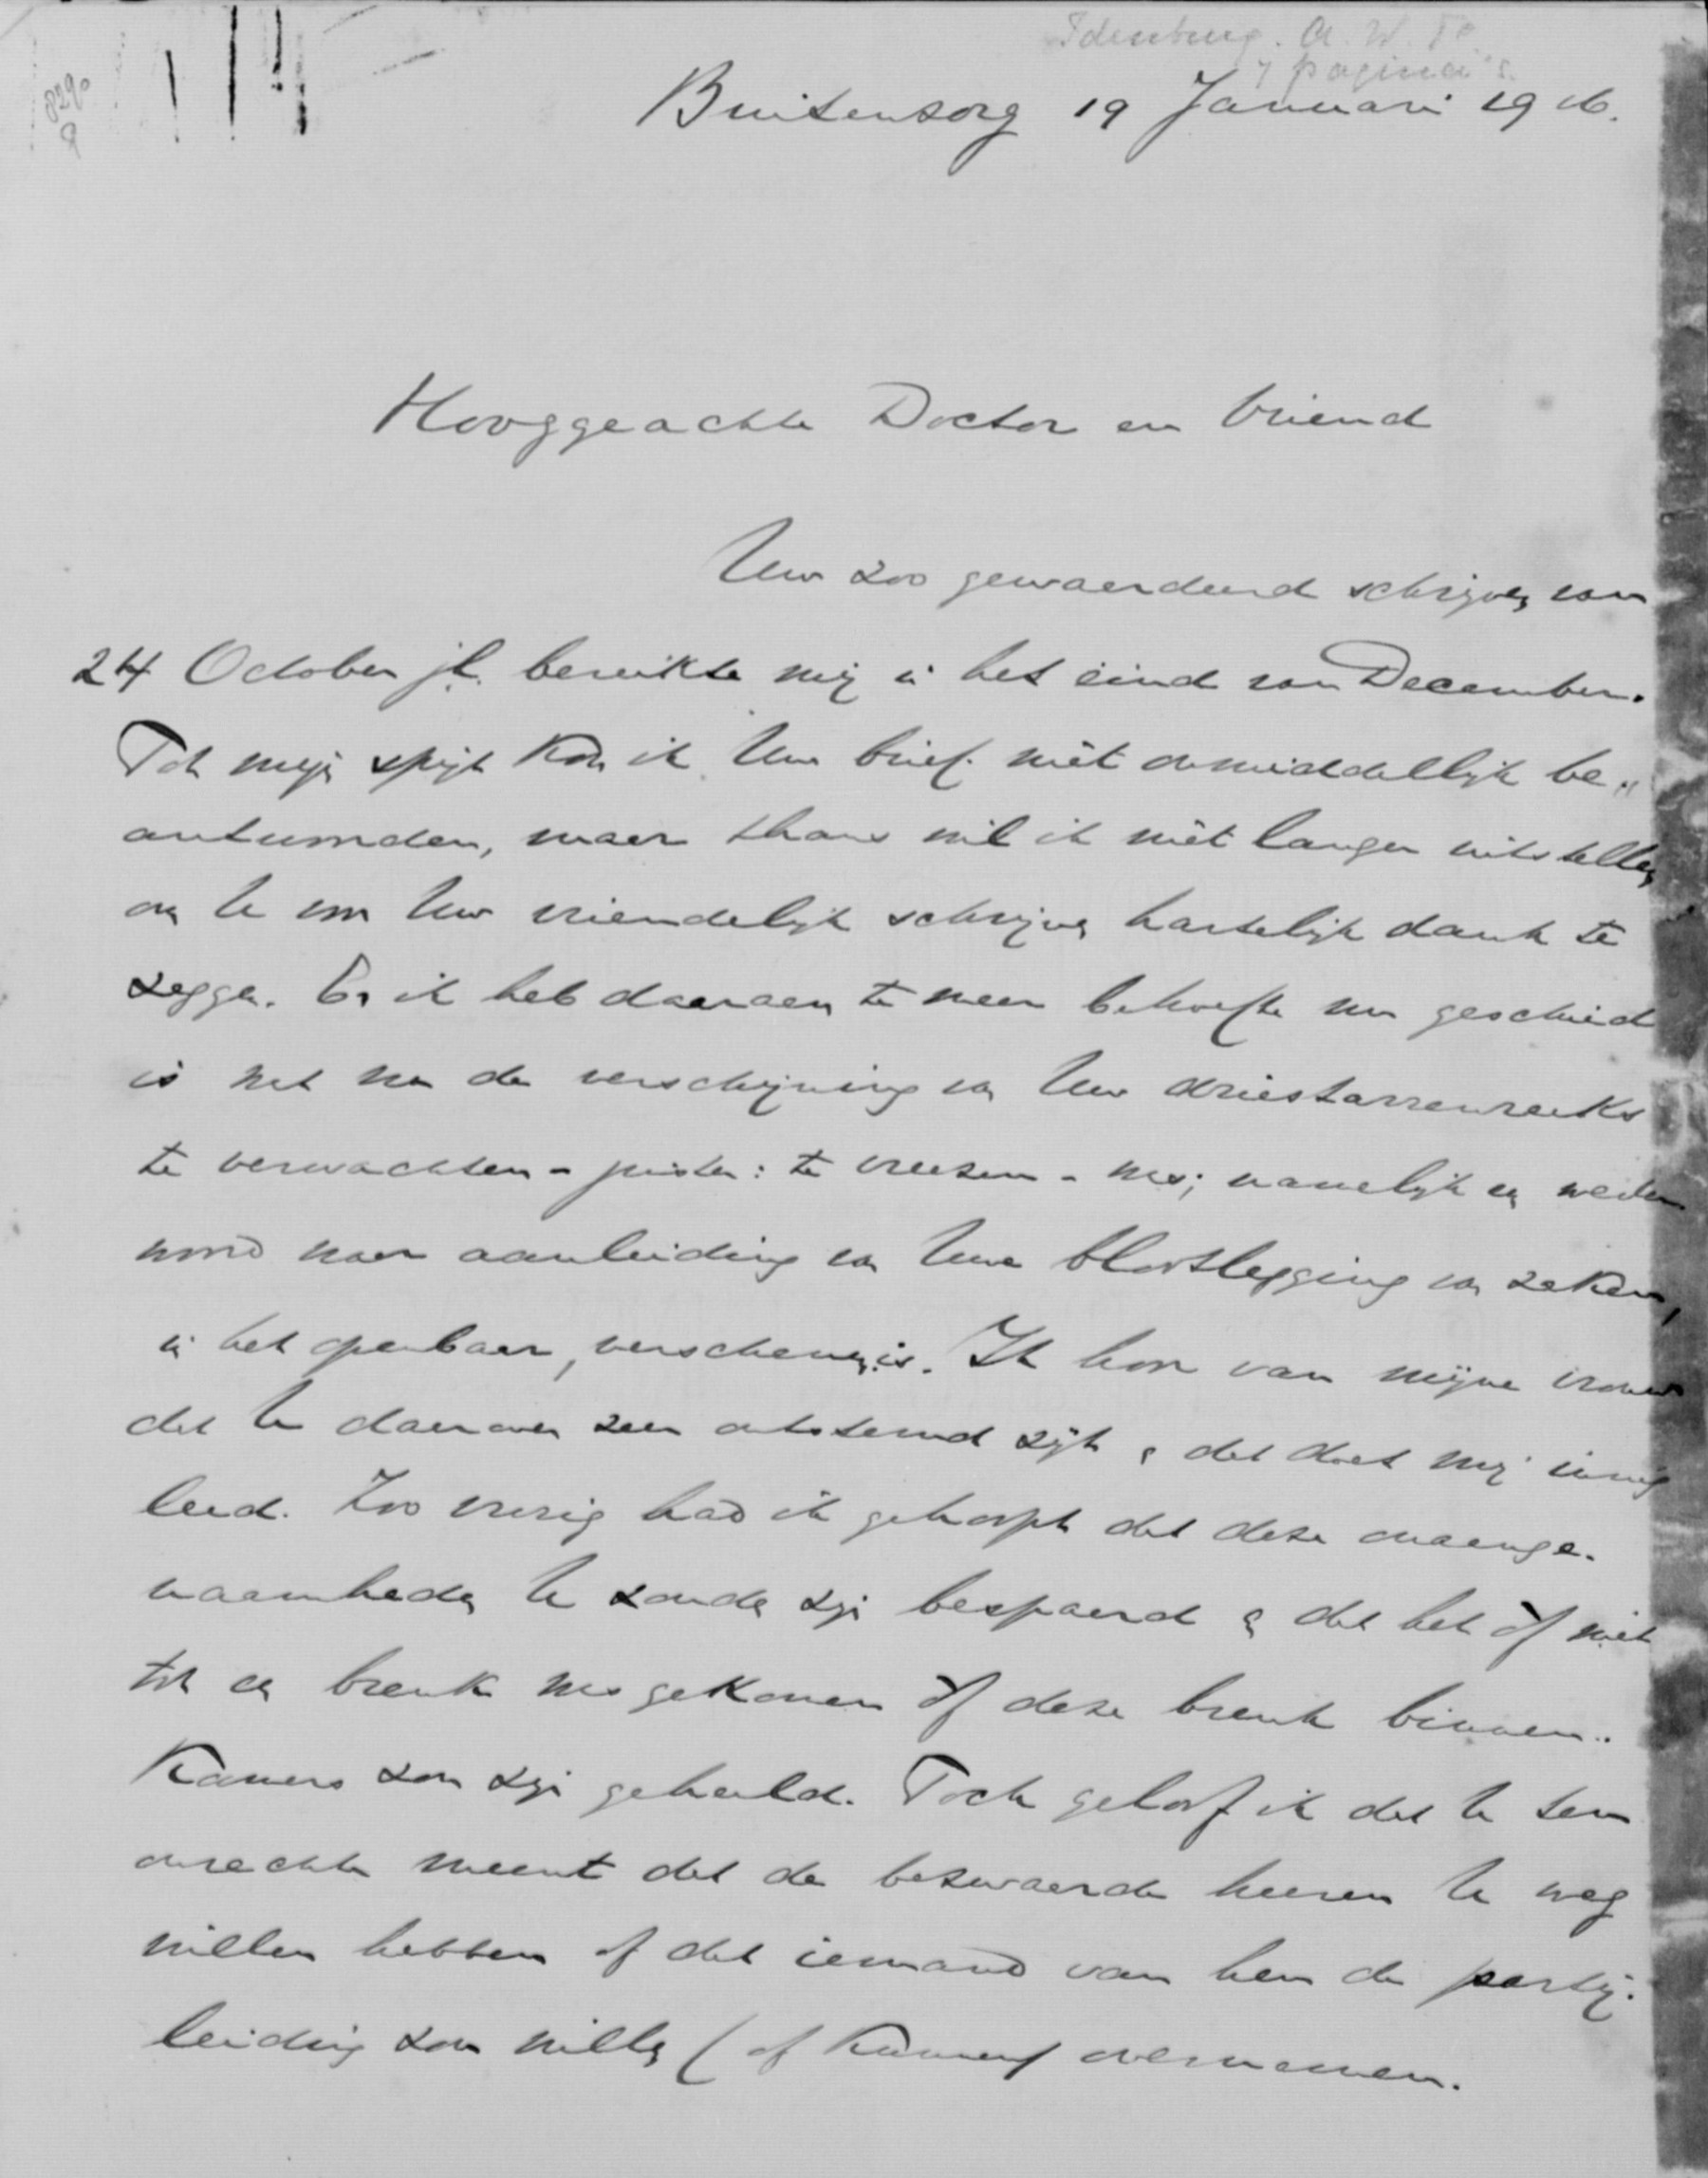 Idenburg. A. W. F.
7 pagina's.
8290
Buitenzorg 19 Januari 1916.
Hooggeachte Doctor en Vriend
Uw zoo gewaardeerd schrijven van
24 October jl. bereikte mij in het eind van December.
Tot mijn spijt kon ik Uw brief niet onmiddellijk be„
antwoorden, maar thans wil ik niet langer uitstellen
om U voor Uw vriendelijk schrijven hartelijk dank te
zeggen. En ik heb daaraan te meer behoefte nu geschied
is wat na de verschijning van Uw driestarrenreeks
te verwachten - juister: te vreezen - was; namelijk een weder
woord naar aanleiding van Uwe blootlegging van zaken,
in het openbaar, verschenen is. Ik hoor van mijne vrouw
dat U daarover zeer ontstemd zijt & dat doet mij innig
leed. Zoo vurig had ik gehoopt dat deze onaange-
naamheden U zouden zijn bespaard & dat het òf niet
tot een breuk was gekomen òf deze breuk binnen-
kamers zou zijn geheeld. Toch geloof ik dat U ten
onrechte meent dat de bezwaarde heeren U weg
willen hebben of dat iemand van hen de partij-
leiding zou willen (of kunnen) overnemen.